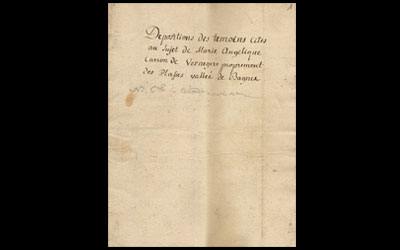 Depositions des temoins cités
au Sujet de Marie Angelique
Carron de Versegere proprement
des Places vallée de Bagnes